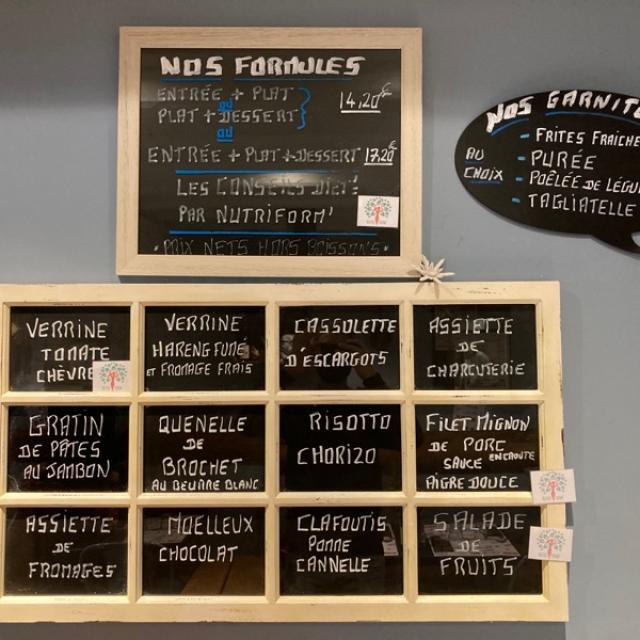 NOS FORMULES
ENTRÉE + PLAT
ou
PLAT + DESSERT
14,20€
ou
ENTRÉE + PLAT + DESSERT 17,20€
LES CONSEILS DIET:
PAR NUTRIFORM'
* PRIX NETS HORS BOISSONS *
NOS GARNIT
AU CHOIX
- FRITES FRAICHE
- PURÉE
- POÊLÉE DE LÉGU
- TAGLIATELLE
VERRINE
TOMATE
CHÈVRE
VERRINE
HARENG FUMÉ
ET FROMAGE FRAIS
CASSOLETTE
D'ESCARGOTS
ASSIETTE
DE
CHARCUTERIE
GRATIN
DE PÂTES
AU JAMBON
QUENELLE
DE
BROCHET
AU BEURRE BLANC
RISOTTO
CHORIZO
FILET MIGNON
DE PORC
SAUCE ENCROUTE
AIGRE DOUCE
ASSIETTE
DE
FROMAGES
MOELLEUX
CHOCOLAT
CLAFOUTIS
POMME
CANNELLE
SALADE
DE
FRUITS